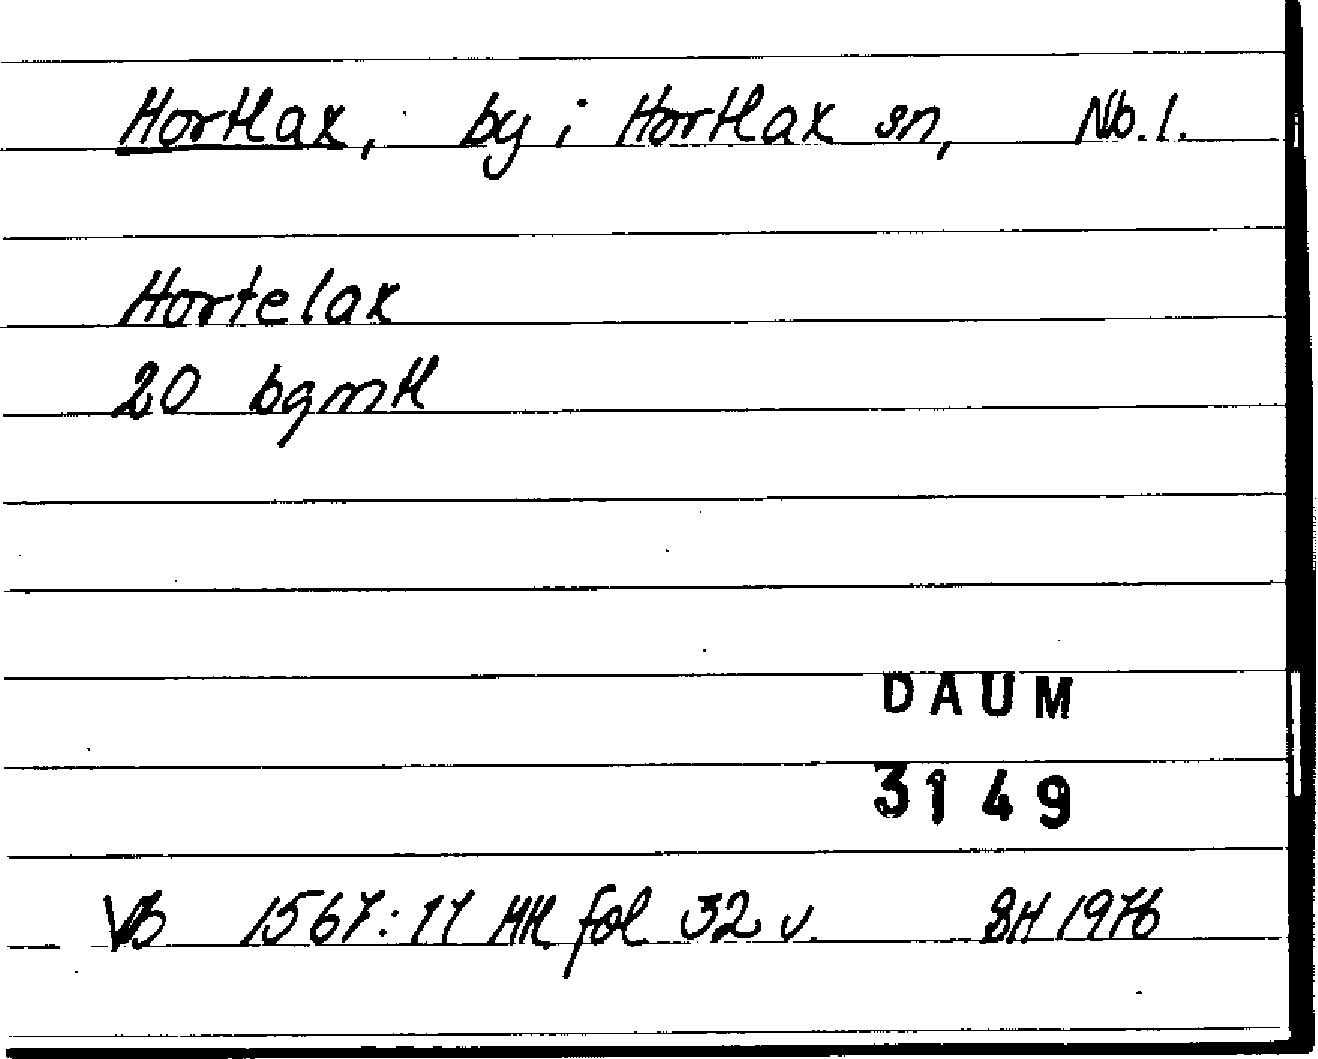 Hortlax, by i Hortlax sn, Nb. l.
Hortelax
20 bgmtl
DAUM
3149
VB 1567:17 HH fol 32 v. SH 1976